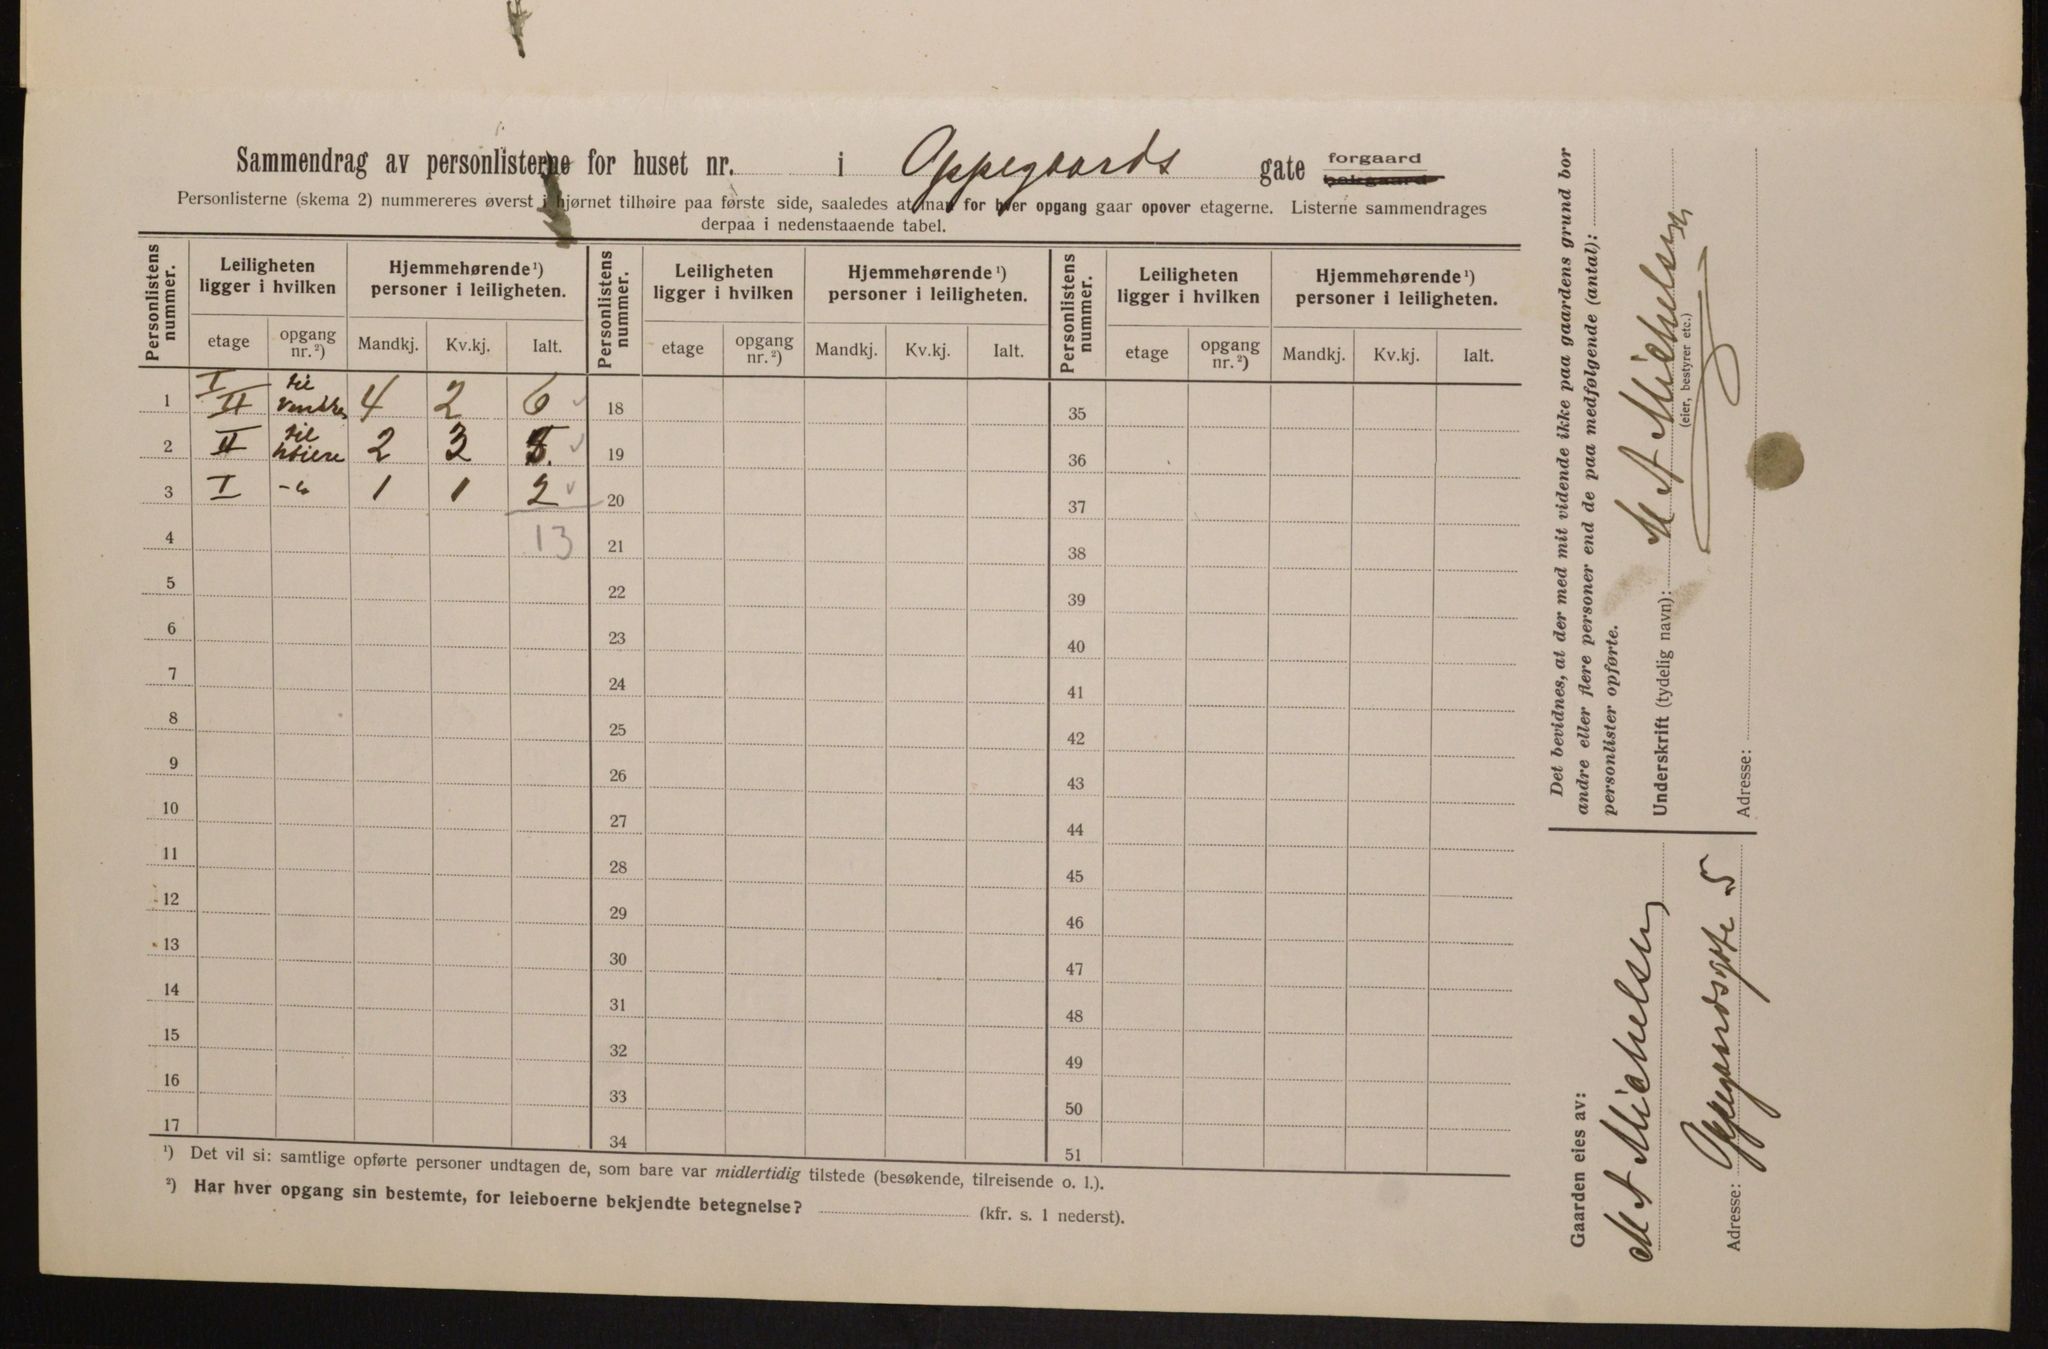 Sammendrag av personlisterne for huset nr. i Oppegaards gate forgaard bakgaard
Personlisterne (skema 2) nummereres øverst i hjørnet tilhøire paa første side, saaledes at man for hver opgang gaar opover etagerne. Listerne sammendrages
derpaa i nedenstaaende tabel.
Personlistens nummer. Leiligheten ligger i hvilken Hjemmehørende¹) personer i leiligheten. Personlistens nummer. Leiligheten ligger i hvilken Hjemmehørende¹) personer i leiligheten. Personlistens nummer. Leiligheten ligger i hvilken Hjemmehørende¹) personer i leiligheten.
etage opgang nr.²) Mandkj. Kv.kj. Ialt. etage opgang nr.²) Mandkj. Kv.kj. Ialt. etage opgang nr.²) Mandkj. Kv.kj. Ialt.
1 I II til 4 2 6 18 35
2 II til høiere 2 3 5. 19 36
3 I 1 1 2 20 37
4 13 21 38
5 22 39
6 23 40
7 24 41
8 25 42
9 26 43
10 27 44
11 28 45
12 29 46
13 30 47
14 31 48
15 32 49
16 33 50
17 34 51
¹) Det vil si: samtlige opførte personer undtagen de, som bare var midlertidig tilstede (besøkende, tilreisende o. l.).
²) Har hver opgang sin bestemte, for leieboerne bekjendte betegnelse? (kfr. s. 1 nederst).
Det bevidnes, at der med mit vidende ikke paa gaardens grund bor
andre eller flere personer end de paa medfølgende (antal):
personlister opførte.
Underskrift (tydelig navn): M A Michelsen
(eier, bestyrer etc.)
Adresse:
Gaarden eies av:
M A Michelsen
Adresse: Oppegaardsgte 5